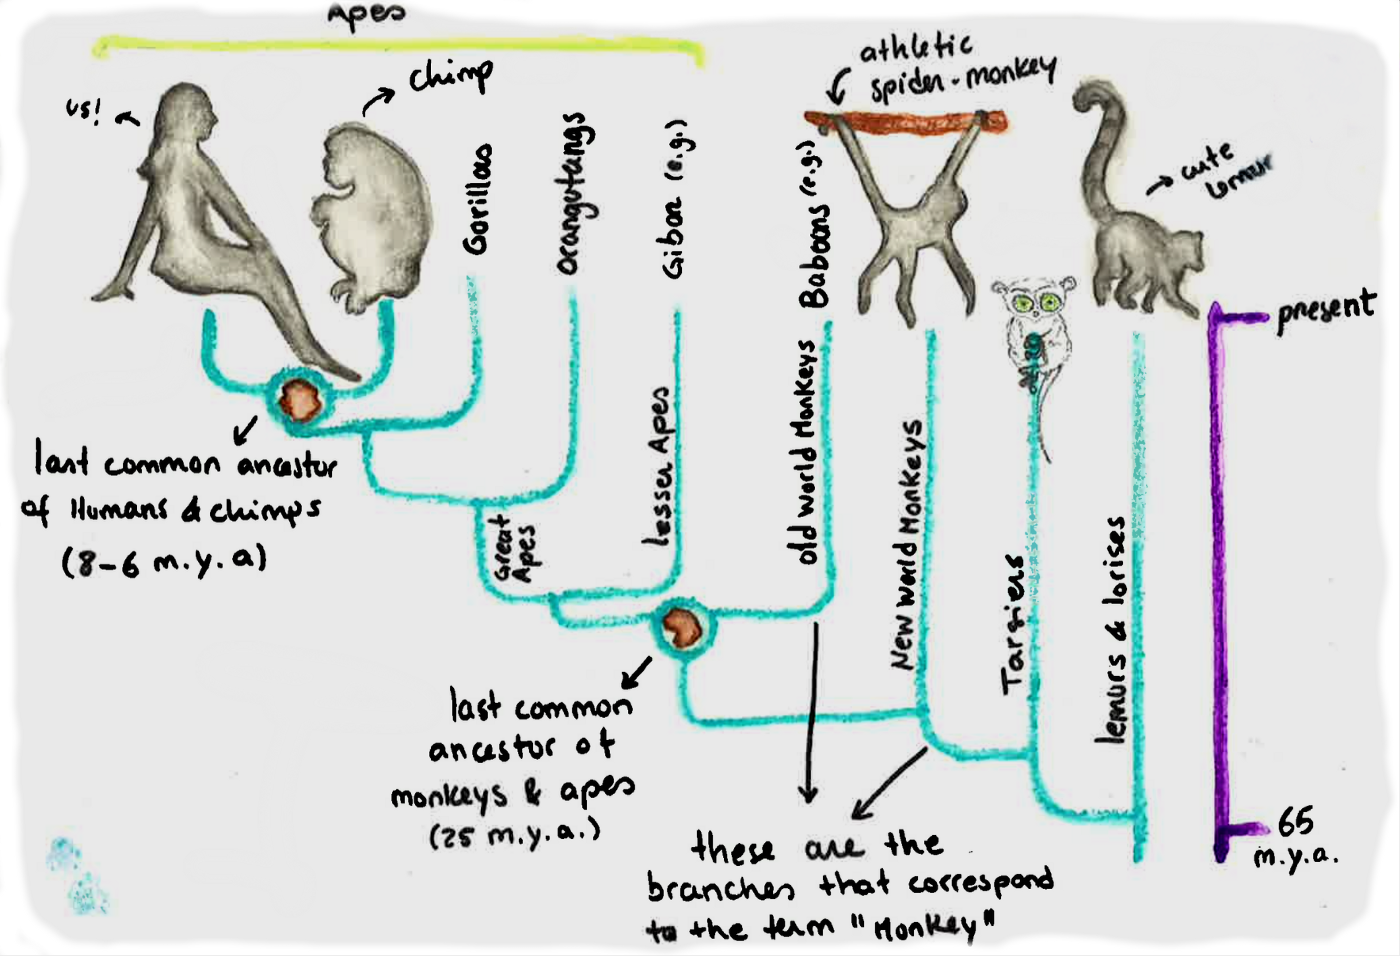 Apes
us!
chimp
Gorillas
Orangutangs
Gibon (e.g.)
Baboons (e.g.)
athletic
spider-monkey
cute
lemur
present
last common ancestor
of Humans & chimps
(8-6 m.y.a)
Great
Apes
lesser Apes
old world Monkeys
New world Monkeys
Tarsiers
lemurs & lorises
last common
ancestor of
monkeys & apes
(25 m.y.a.)
these are the
branches that correspond
to the term "Monkey"
65
m.y.a.